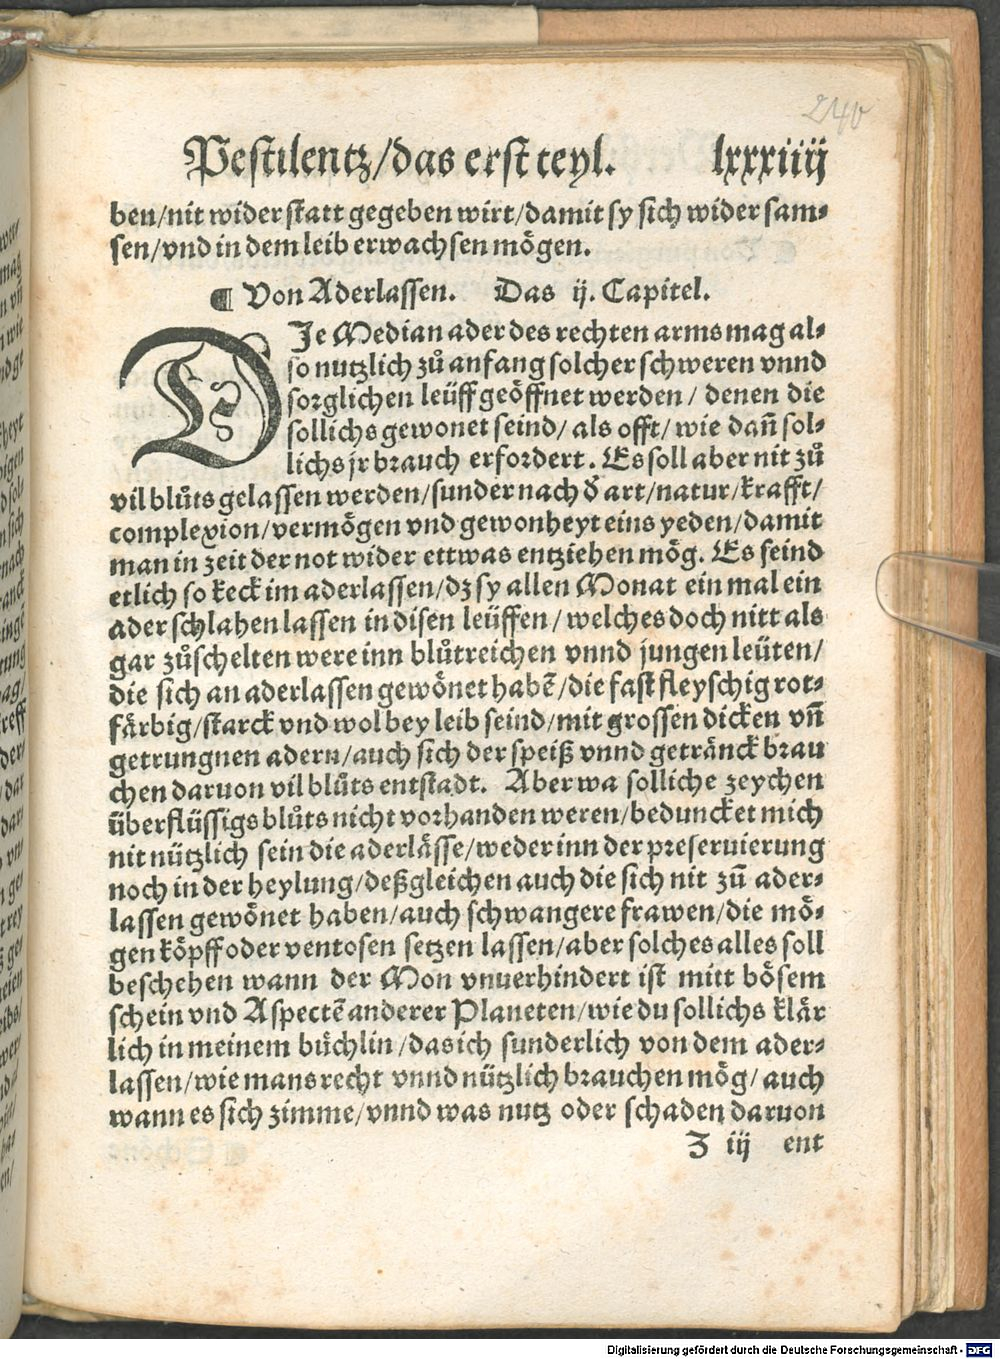 240
Pestilentz/das erst teyl. lxxxiiij
ben/nit wider statt gegeben wirt/damit sy sich wider sam⸗
sen/vnd in dem leib erwachsen mögen.
¶ Von Aderlassen. Das ij. Capitel.
DJe Median ader des rechten arms mag al⸗
so nutzlich zů anfang solcher schweren vnnd
sorglichen leüff geöffnet werden/ denen die
sollichs gewonet seind/ als offt/ wie dañ sol⸗
lichs jr brauch erfordert. Es soll aber nit zů
vil blůts gelassen werden/sunder nach d̓ art/natur/krafft/
complexion/vermögen vnd gewonheyt eins yeden/damit
man in zeit der not wider ettwas entziehen mög. Es seind
etlich so keck im aderlassen/dz sy allen Monat ein mal ein
ader schlahen lassen in disen leüffen/welches doch nitt als
gar zůschelten were inn blůtreichen vnnd jungen leüten/
die sich an aderlassen gewönet habẽ/die fast fleyschig rot⸗
färbig/starck vnd wol bey leib seind/mit grossen dicken vñ
getrungnen adern/auch sich der speiß vnnd getränck brau
chen daruon vil blůts entstadt. Aber wa solliche zeychen
überflüssigs blůts nicht vorhanden weren/beduncket mich
nit nützlich sein die aderlässe/weder inn der preseruierung
noch in der heylung/deßgleichen auch die sich nit zů ader⸗
lassen gewönet haben/auch schwangere frawen/die mö⸗
gen köpff oder ventosen setzen lassen/aber solches alles soll
beschehen wann der Mon vnuerhindert ist mitt bösem
schein vnd Aspectẽ anderer Planeten/wie du sollichs klär
lich in meinem büchlin/das ich sunderlich von dem ader⸗
lassen/wie mans recht vnnd nützlich brauchen mög/ auch
wann es sich zimme/vnnd was nutz oder schaden daruon
Z iij ent
Digitalisierung gefördert durch die Deutsche Forschungsgemeinschaft - DFG